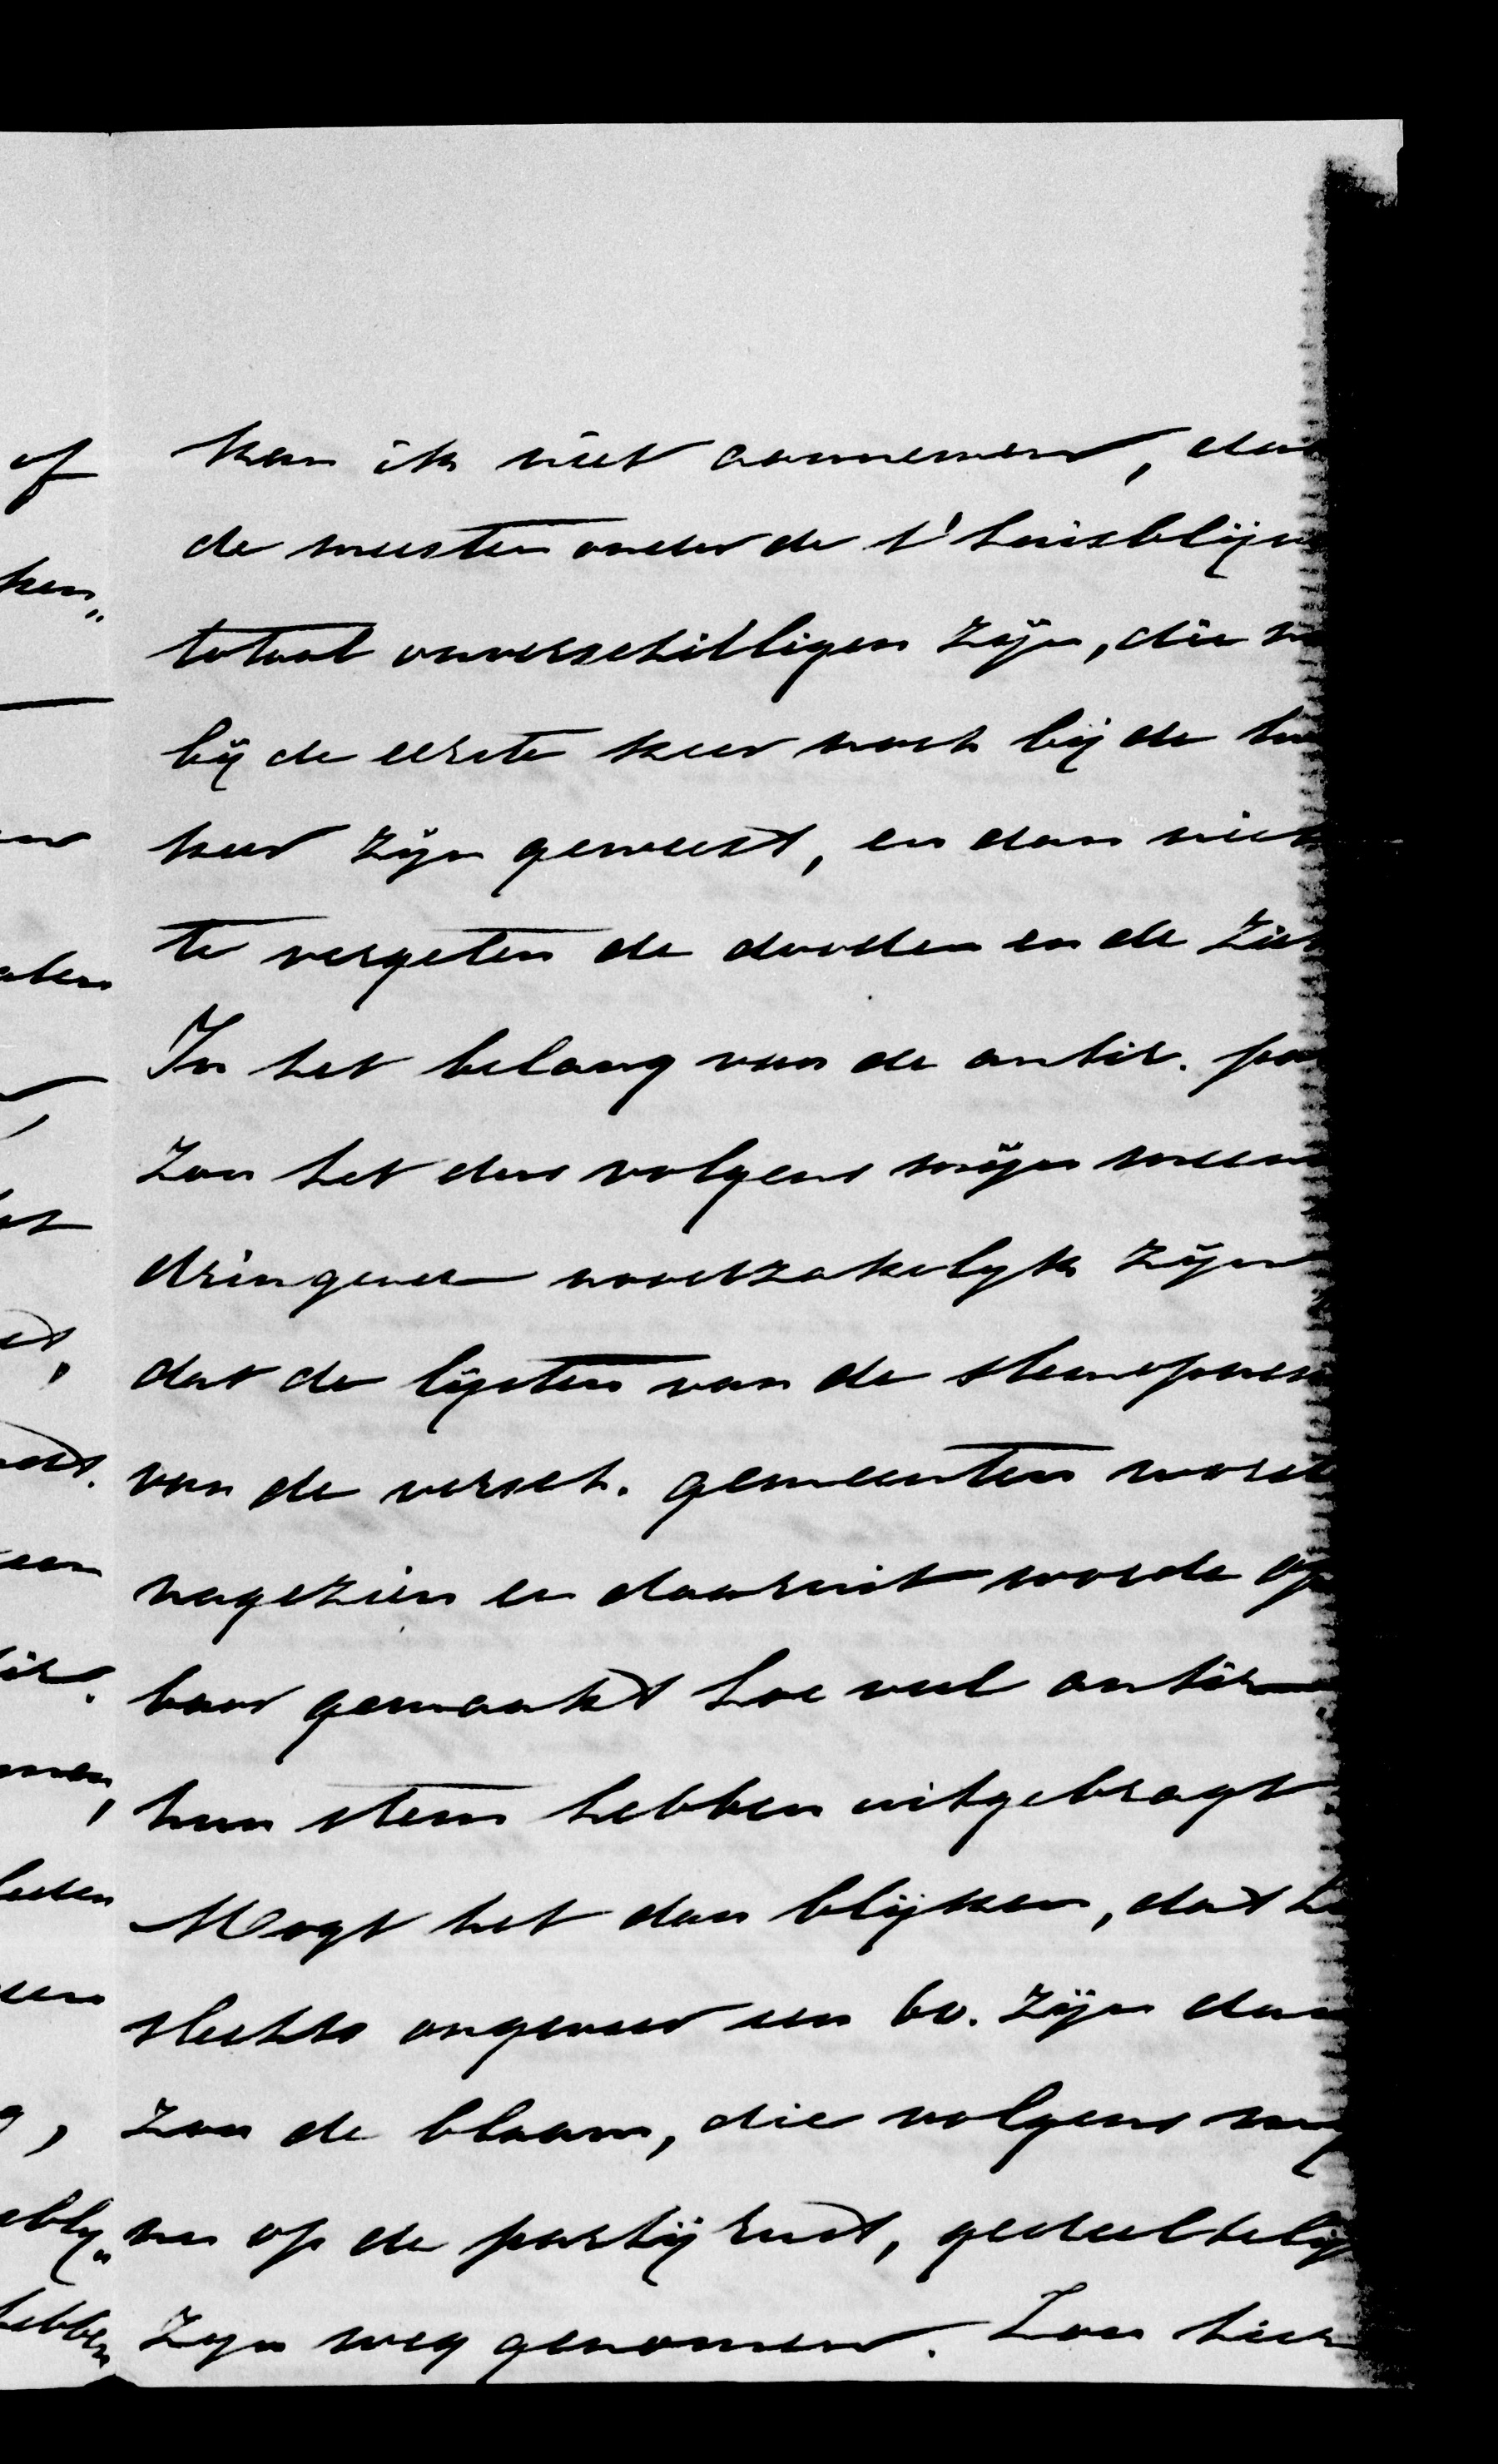 kan ik niet aannemen, dat
de meesten onder de t'huisblijv
totaal onverschilligen zijn, die n
bij de eerste keer noch bij de tw
keer zijn geweest, en dan niet
te vergeten de dooden en de Ziek
In het belang van de antir. par
zou het dus volgens mijn meen
dringend noodzakelyk zijn
dat de lijsten van de stemopnem
van de versch. gemeenten word
nagezien en daaruit worde op
baar gemaakt hoe veel antir.
hun stem hebben uitgebragt
Mogt het dan blijken, dat h
slechts ongeveer een 60. zijn dan
zou de blaam, die volgens my
nu op de partij rust, gedeeltelijk
zyn weg genomen. Zou hier